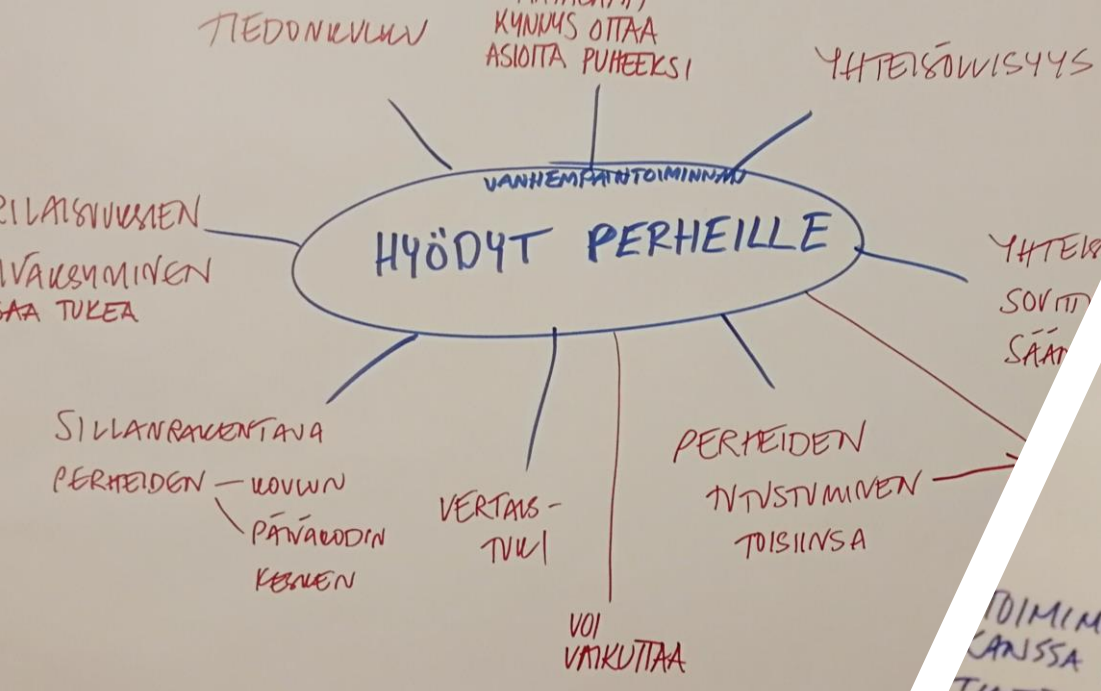 TIEDONKULKU
KYNNYS OTTAA
ASIOITA PUHEEKSI
YHTEISÖLLISYYS
VANHEMPAINTOIMINNAN
HYÖDYT PERHEILLE
ERILAISUUKSIEN
HYVÄKSYMINEN
SAA TUKEA
YHTEIS
SOVITT
SÄÄN
SILLANRAKENTAJA
PERHEIDEN — KOULUN
PÄIVÄKODIN
KESKEN
VERTAIS-
TUKI
PERHEIDEN
TUTUSTUMINEN
TOISIINSA
VOI
VAIKUTTAA
TOIMIM
KANSSA